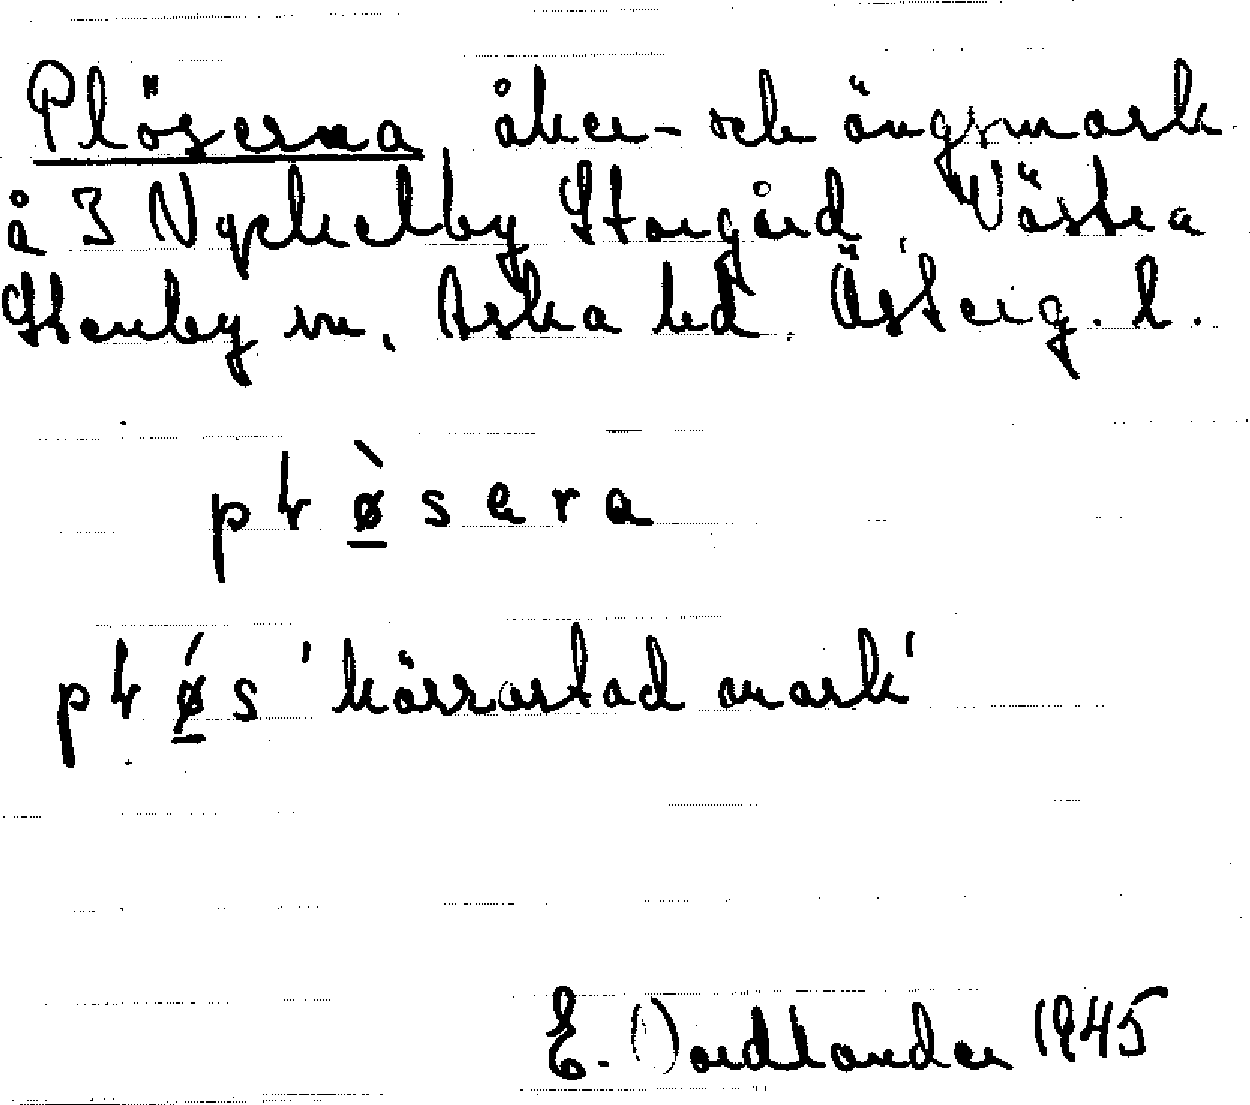 Plöserna, åker- och ängsmark
å 3 Nyckelby Storgård, Västra
Stenby sn, Aska hd. Österg. l.
płø̱̀sera
płǿ̱s 'kärrartad mark'
E. 1945